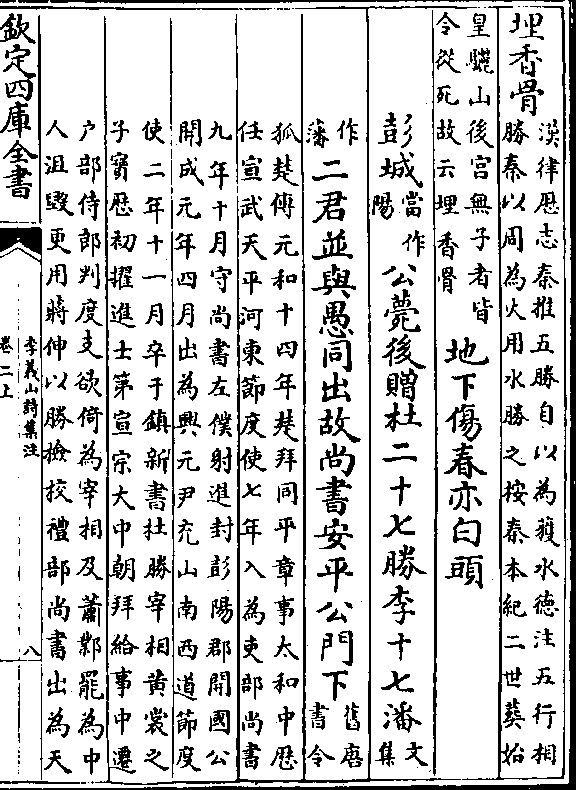 埋香骨
漢律厯志秦推五勝自以為獲水德注五行相
勝秦以周為火用水勝之按秦本紀二世葬始
皇驪山後宫無子者皆
令從死故云埋香骨
地下傷春亦白頭
彭城
當作
陽
公薨後贈杜二十七勝李十七潘
文
集
作
藩
二君並與愚同出故尚書安平公門下
舊唐
書令
狐楚傳元和十四年楚拜同平章事太和中歴
任宣武天平河東節度使七年入為吏部尚書
九年十月守尚書左僕射進封彭陽郡開國公
開成元年四月出為興元尹充山南西道節度
使二年十一月卒于鎮新書杜勝宰相黄裳之
子寳厯初擢進士第宣宗大中朝拜給事中遷
户部侍郎判度支欲倚為宰相及蕭鄴罷為中
人沮毁更用蔣伸以勝檢挍禮部尚書出為天
欽定四庫全書
李義山詩集注
卷二上
八